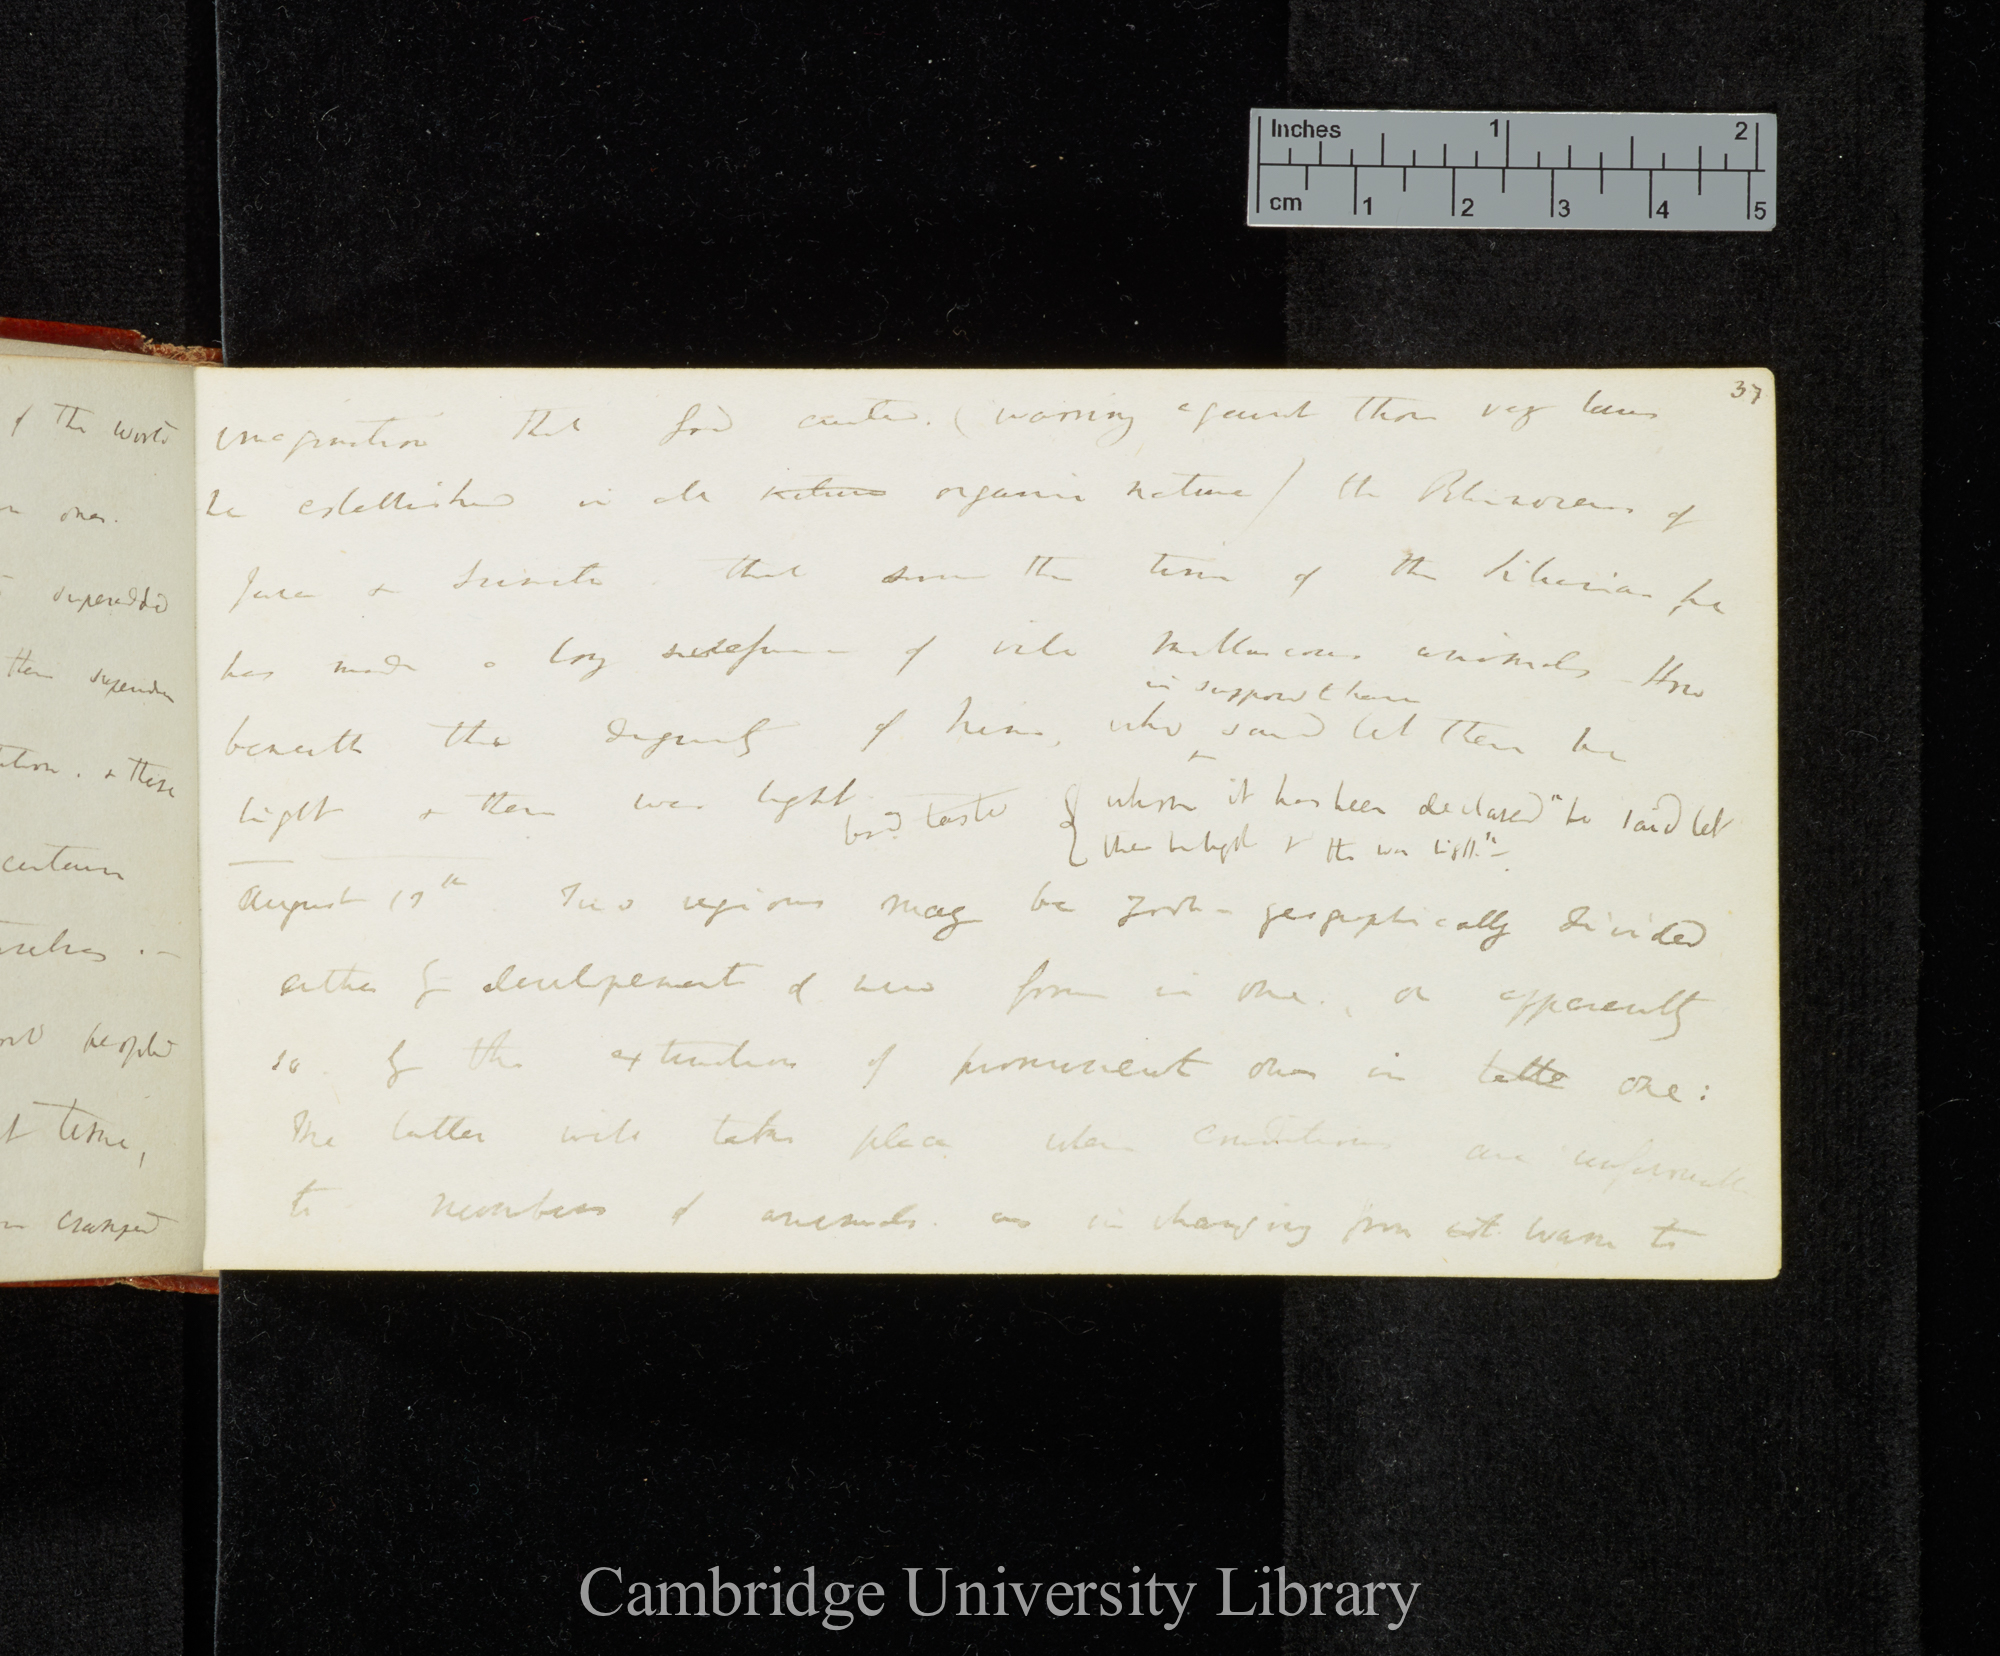 37
imagination that God created. (warring against those very laws
he established in all nature organic nature) the Rhinoceros of
Java & Sumatra, that since the time of the Silurian, he
has made a long succession of vile Molluscous animals – How
in supposed have
beneath the dignity of him, who said let there be
light & there was light.
bad taste
{whom it has been declared "he said let
there be light & there was light."–
August 19th. Two regions may be zoolo-geographically divided
either by developement of new forms in one, or apparently
so by the extinction of prominent ones in latte one:
The latter will take place when conditions are unfavourable
to numbers of animals. as in changing from warm to
of the world
ones.
superadded
then superadded
& these
certain
peopled
time,
changed
Inches 1 2
cm 1 2 3 4 5
Cambridge University Library